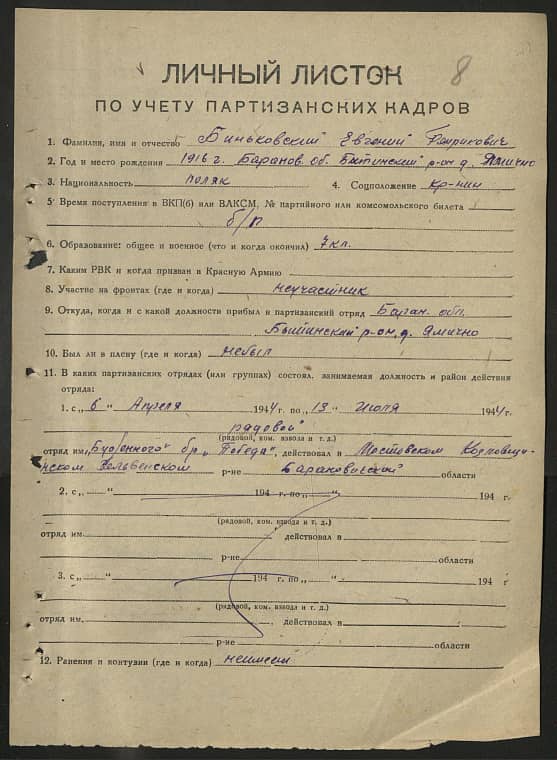 8
ЛИЧНЫЙ ЛИСТОК
ПО УЧЕТУ ПАРТИЗАНСКИХ КАДРОВ
1. Фамилия, имя и отчество Биньковский Евгений Генрикович
2. Год и место рождения 1916 г. Баранов. об. Бытинский р-он д. Ямично
3. Национальность поляк 4. Соцположение кр-нин
5 Время поступления в ВКП(б) или ВЛКСМ, № партийного или комсомольского билета
б/п
6. Образование: общее и военное (что и когда окончил) 7 кл.
7. Каким РВК и когда призван в Красную Армию
8. Участие на фронтах (где и когда) неучастник
9. Откуда, когда и с какой должности прибыл в партизанский отряд Баран. обл.
Бытинский р-он, д. Ямично
10. Был ли в плену (где и когда) небыл
11. В каких партизанских отрядах (или группах) состоял, занимаемая должность и район действия
отряда:
1. с „6" Апреля 1944 г. по „13" Июля 1944 г.
рядовой
(рядовой, ком. взвода и т. д.)
отряд им. „Буденного" бр „Победа", действовал в Мостовском
Зельвенском р-не Барановичской области
2. с „ " 194 г. по „ " 194 г.
(рядовой, ком. взвода и т. д.)
отряд им. действовал в
р-не области
3. с „ " 194 г. по „ " 194 г.
(рядовой, ком. взвода и т. д.)
отряд им. действовал в
р-не области
12. Ранения и контузии (где и когда) неимеет